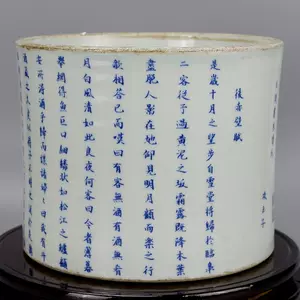 後赤壁賦
是歲十月之望步自雪堂將歸於臨皋
二客從予過黃泥之坂霜露既降木葉
盡脫人影在地仰見明月顧而樂之行
歌相答已而嘆曰有客無酒有酒無肴
月白風清如此良夜何客曰今者薄暮
舉網得魚巨口細鱗狀如松江之鱸顧
安所得酒乎歸而謀諸婦曰我有斗
酒藏之久矣以待子不時之